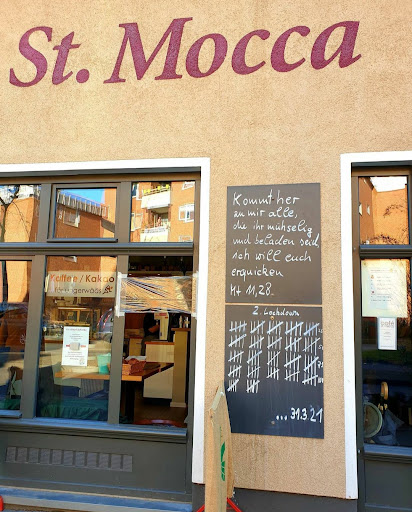 St. Mocca
Kommt her
zu mir alle,
die ihr mühselig
und beladen seid
ich will euch
erquicken
Mt 11,28
2. Lockdown
... 31.3.21
Kaffee / Kakao